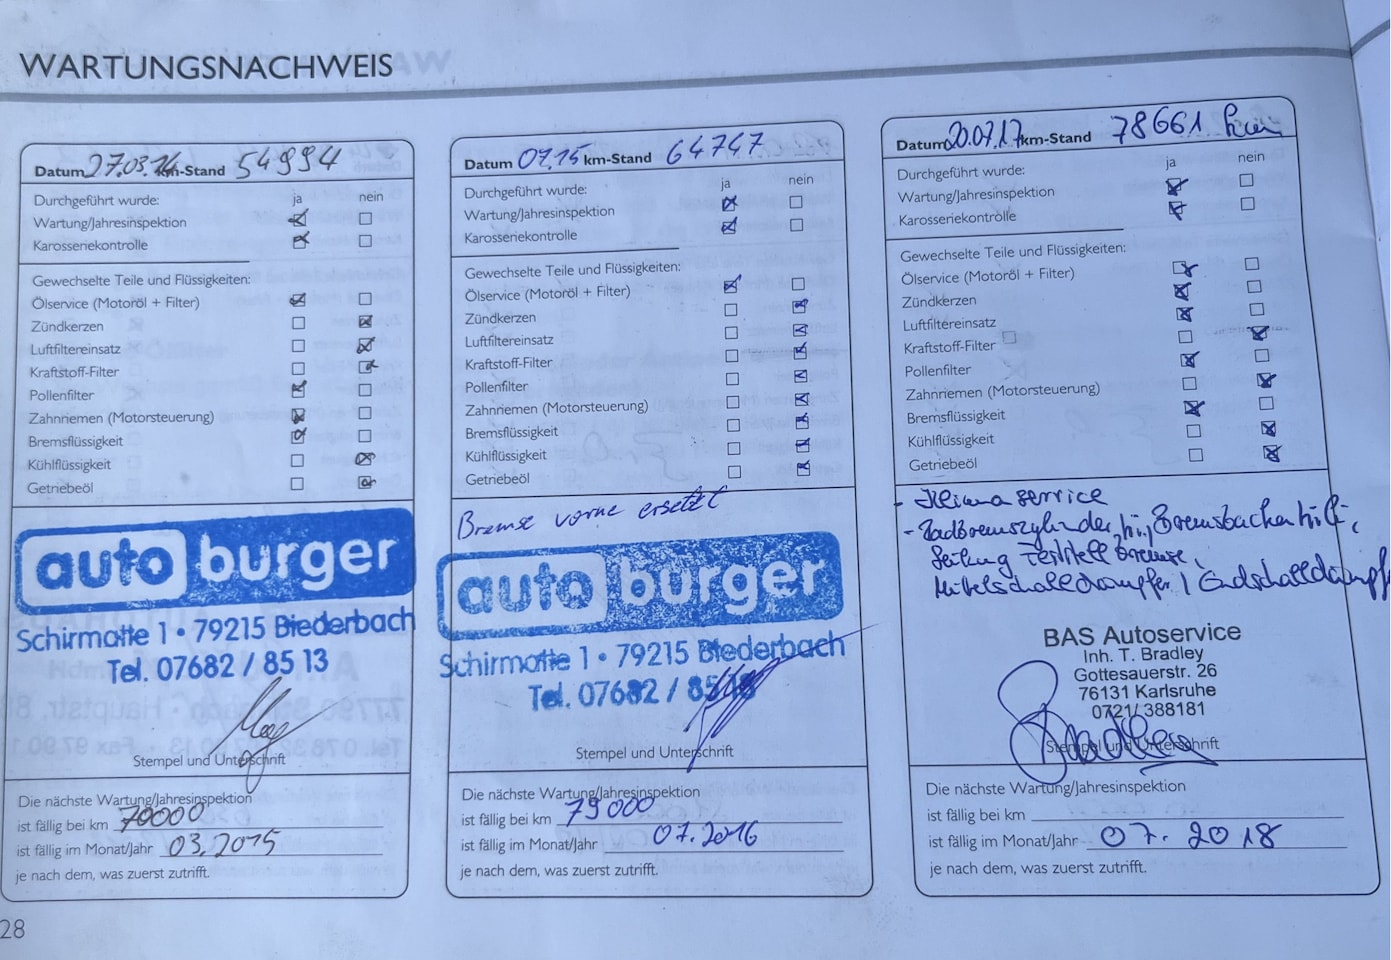 WARTUNGSNACHWEIS
Datum 27.03.14 km-Stand 54994
Durchgeführt wurde: ja nein
Wartung/Jahresinspektion
Karosseriekontrolle
Gewechselte Teile und Flüssigkeiten:
Ölservice (Motoröl + Filter)
Zündkerzen
Luftfiltereinsatz
Kraftstoff-Filter
Pollenfilter
Zahnriemen (Motorsteuerung)
Bremsflüssigkeit
Kühlflüssigkeit
Getriebeöl
auto burger
Schirmatte 1 • 79215 Biederbach
Tel. 07682 / 85 13
Stempel und Unterschrift
Die nächste Wartung/Jahresinspektion
ist fällig bei km 70000
ist fällig im Monat/Jahr 03.2015
je nach dem, was zuerst zutrifft.
Datum 07.15 km-Stand 64747
Durchgeführt wurde: ja nein
Wartung/Jahresinspektion
Karosseriekontrolle
Gewechselte Teile und Flüssigkeiten:
Ölservice (Motoröl + Filter)
Zündkerzen
Luftfiltereinsatz
Kraftstoff-Filter
Pollenfilter
Zahnriemen (Motorsteuerung)
Bremsflüssigkeit
Kühlflüssigkeit
Getriebeöl
Bremse vorne ersetzt
auto burger
Schirmatte 1 • 79215 Biederbach
Tel. 07682 / 85 13
Stempel und Unterschrift
Die nächste Wartung/Jahresinspektion
ist fällig bei km 79000
ist fällig im Monat/Jahr 07.2016
je nach dem, was zuerst zutrifft.
Datum 20.07.17 km-Stand 78661
Durchgeführt wurde: ja nein
Wartung/Jahresinspektion
Karosseriekontrolle
Gewechselte Teile und Flüssigkeiten:
Ölservice (Motoröl + Filter)
Zündkerzen
Luftfiltereinsatz
Kraftstoff-Filter
Pollenfilter
Zahnriemen (Motorsteuerung)
Bremsflüssigkeit
Kühlflüssigkeit
Getriebeöl
- Klimaservice
- Radbremszylinder hi, Bremsbacken hi
Mittelschalldämpfer / Endschalldämpf
BAS Autoservice
Inh. T. Bradley
Gottesauerstr. 26
76131 Karlsruhe
0721/ 388181
Stempel und Unterschrift
Die nächste Wartung/Jahresinspektion
ist fällig bei km
ist fällig im Monat/Jahr 07. 2018
je nach dem, was zuerst zutrifft.
28